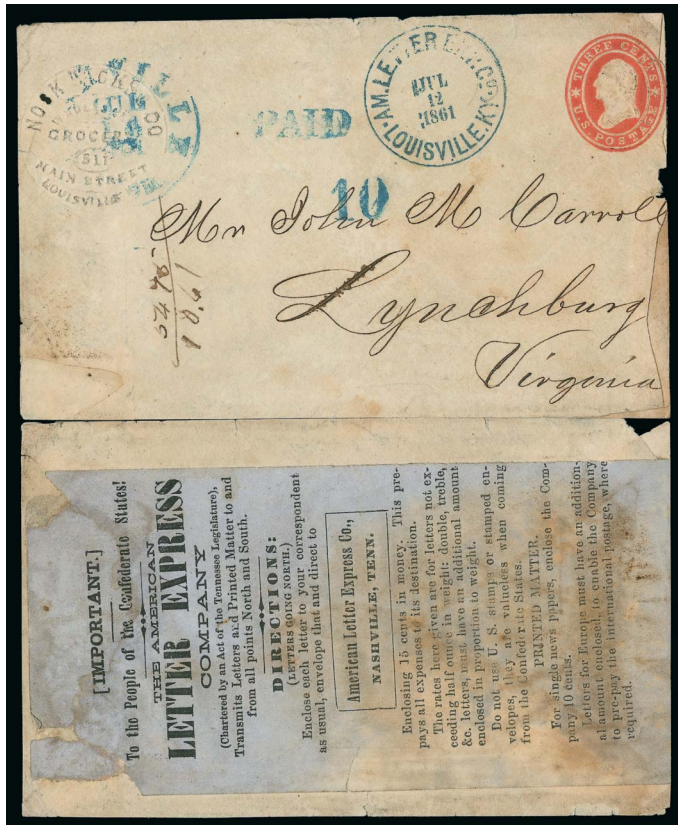 NOCK
GROCER
511
MAIN STREET
LOUISVILLE
PAID
10
AM. LETTER EXP. Co.
JUL
12
1861
LOUISVILLE. KY.
THREE CENTS
U.S. POSTAGE
Mr John M Carroll
Lynchburg
Virginia
[IMPORTANT.]
To the People of the Confederate States!
THE AMERICAN
LETTER EXPRESS
COMPANY
(Chartered by an Act of the Tennessee Legislature),
Transmits Letters and Printed Matter to and
from all points North and South.
DIRECTIONS:
(LETTERS GOING NORTH.)
Enclose each letter to your correspondent
as usual, envelope that and direct to
American Letter Express Co.,
NASHVILLE, TENN.
Enclosing 15 cents in money. This pre-
pays all expenses to its destination.
The rates here given are for letters not ex-
ceeding half ounce in weight: double, treble,
&c. letters, must have an additional amount
enclosed in proportion to weight.
Do not use U. S. stamps or stamped en-
velopes, they are valueless when coming
from the Confederate States.
PRINTED MATTER.
For single news papers, enclose the Com-
pany 10 cents.
Letters for Europe must have an addition-
al amount enclosed, to enable the Company
to pre-pay the international postage, where
required.